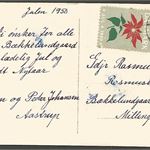 Julen 1950
i ønsker Jer alle
Bakkelundgaard
lædelig Jul og
dt Nytaar
en og Peder Johansen
Aastrup
Ejr Rasmus
Rosmus
Bakkelundgaard
Milling